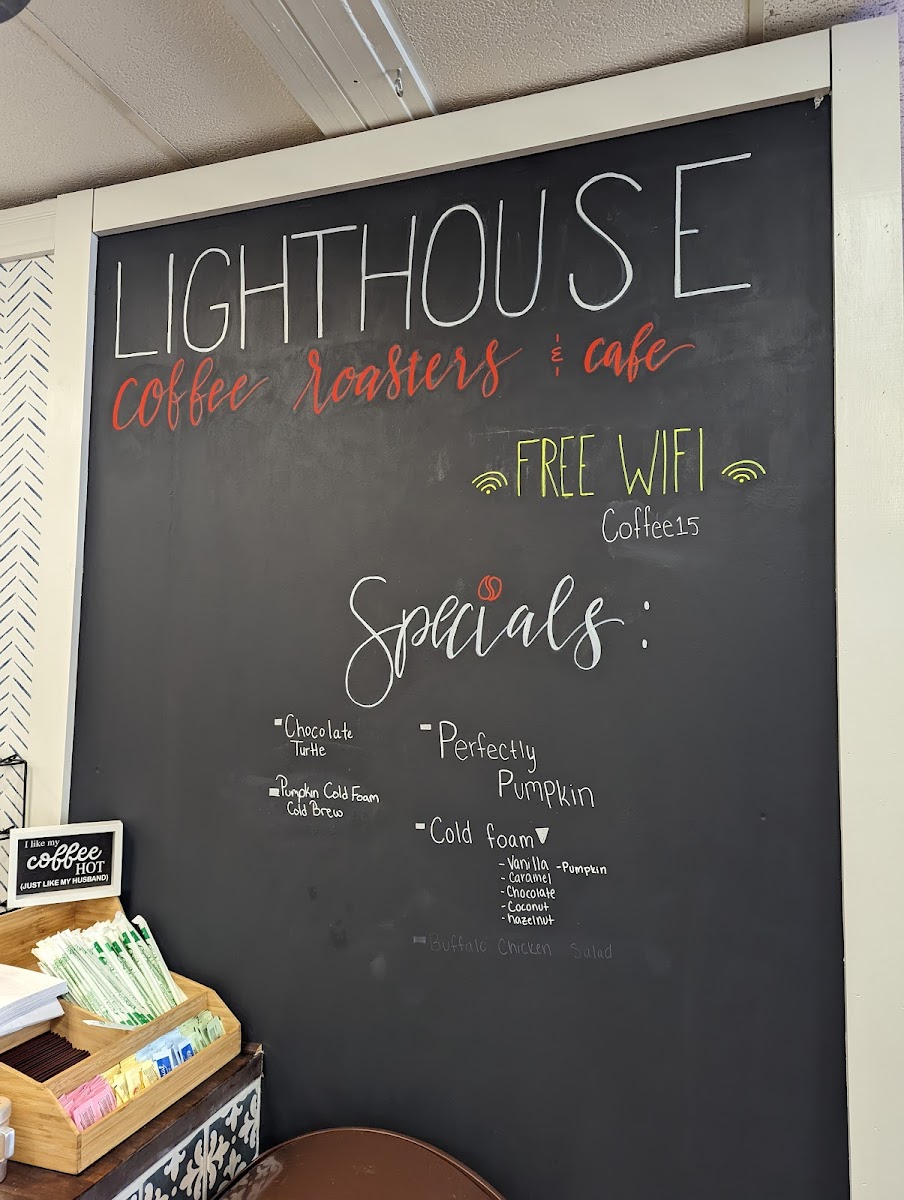 LIGHTHOUSE
coffee roasters & cafe
FREE WIFI
Coffee15
Specials:
- Chocolate
Turtle
- Pumpkin Cold Foam
Cold Brew
- Perfectly
Pumpkin
- Cold foam
- Vanilla - Pumpkin
- Caramel
- Chocolate
- Coconut
- hazelnut
- Buffalo Chicken Salad
I like my
coffee
HOT
(JUST LIKE MY HUSBAND)